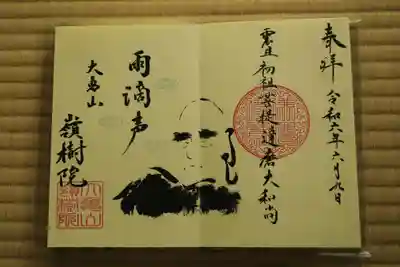 奉拝
令和六年六月九日
震旦初祖菩提達磨大和尚
雨滴声
大亀山
嶺樹院